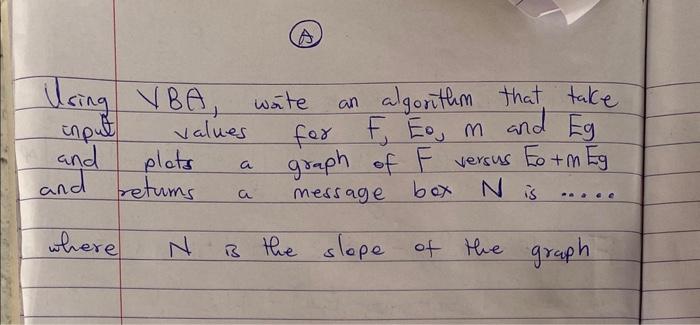 A
Using VBA, write an algorithm that take
input values for F, Eo, m and Eg
and plots a graph of F versus Eo+mEg
and returns a message box N is .....
where N is the slope of the graph